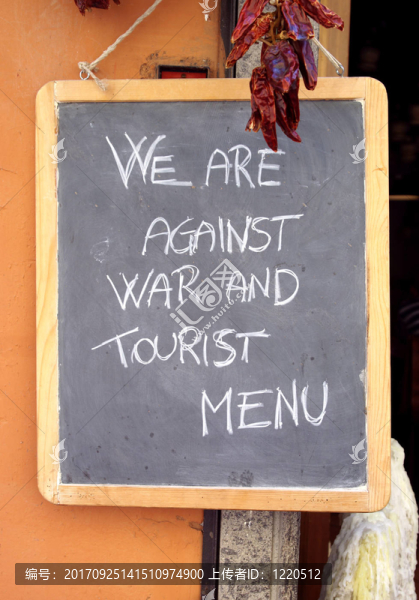 WE ARE
AGAINST
WAR AND
TOURIST
MENU
编号:20170925141510974900 上传者ID:1220512